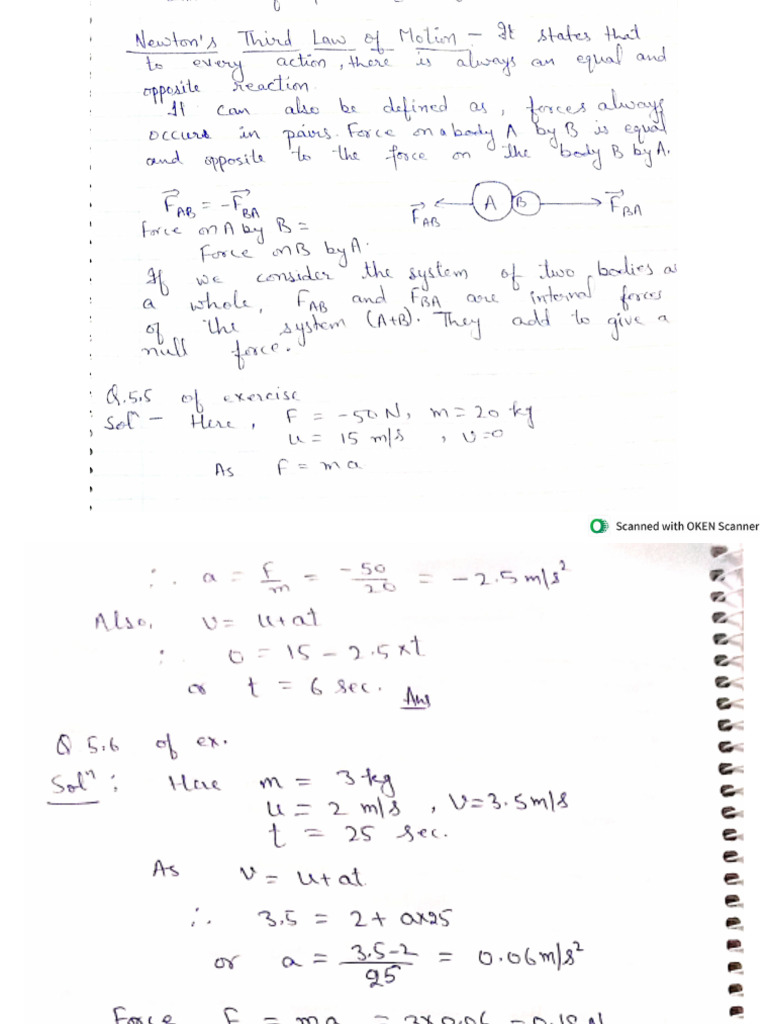 Newton's Third Law of Motion - It states that
to every action, there is always an equal and
opposite reaction.
It can also be defined as, forces always
occurs in pairs. Force on a body A by B is equal
and opposite to the force on the body B by A.
F⃗AB = -F⃗BA
F⃗AB A B F⃗BA
Force on A by B =
Force on B by A.
If we consider the system of two bodies as
a whole, FAB and FBA are internal forces
of the system (A+B). They add to give a
null force.
Q.5.5 of exercise
Solⁿ - Here, F = -50N, m = 20 kg
u = 15 m/s, v=0
As F = ma
Scanned with OKEN Scanner
∴ a = F/m = -50/20 = -2.5 m/s²
Also, v = u+at
∴ 0 = 15 - 2.5×t
or t = 6 sec. Ans
Q 5.6 of ex.
Solⁿ: Here m = 3 kg
u = 2 m/s, v=3.5m/s
t = 25 sec.
As v = u+at
∴ 3.5 = 2 + a×25
or a = 3.5-2/25 = 0.06 m/s²
Force F = ma = 3×0.06 = 0.18 N